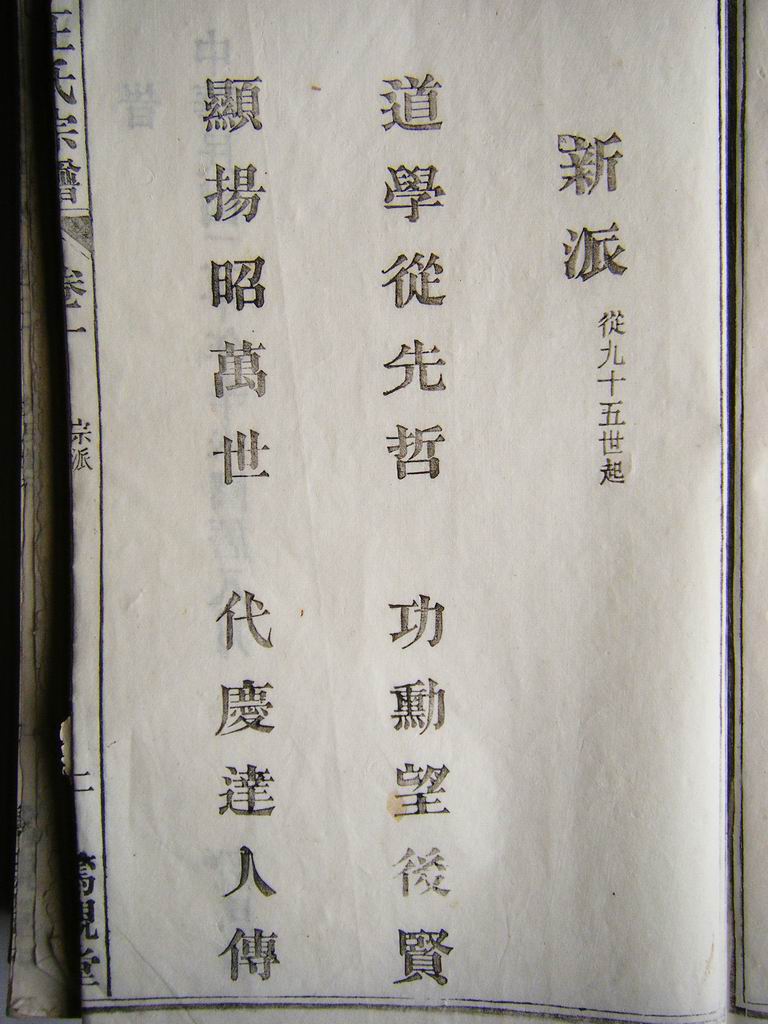 新派 從九十五世起
道學從先哲 功勳望後賢
顯揚昭萬世 代慶達人傳
氏宗譜
卷一
宗派
二